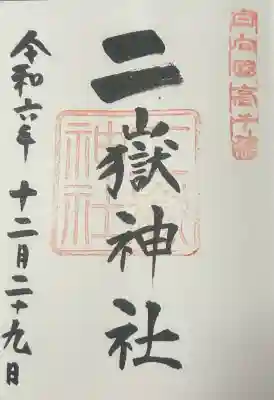 日向国高千穂
二嶽神社
二嶽神社
令和六年 十二月二十九日